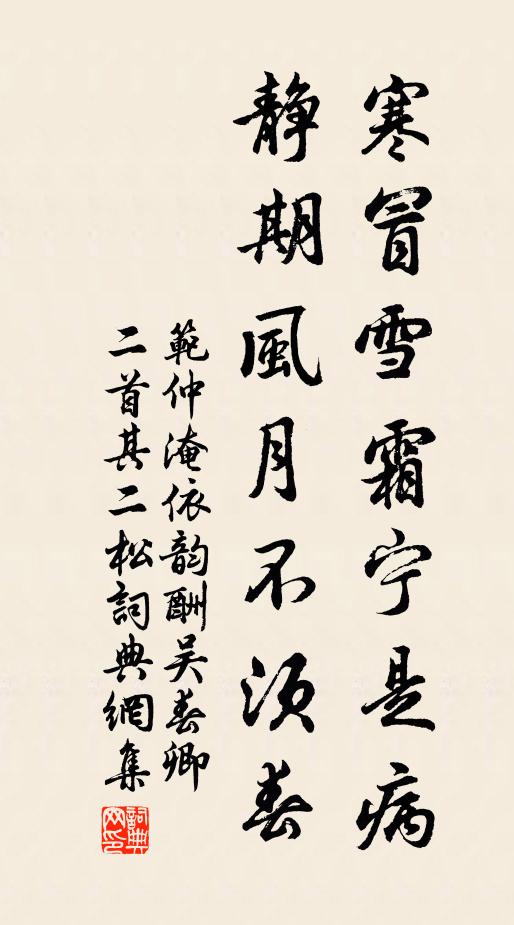 寒冒雪霜宁是病
静期風月不须春
範仲淹依韵酬吴春卿
二首其二松詞典網集
詞典網印